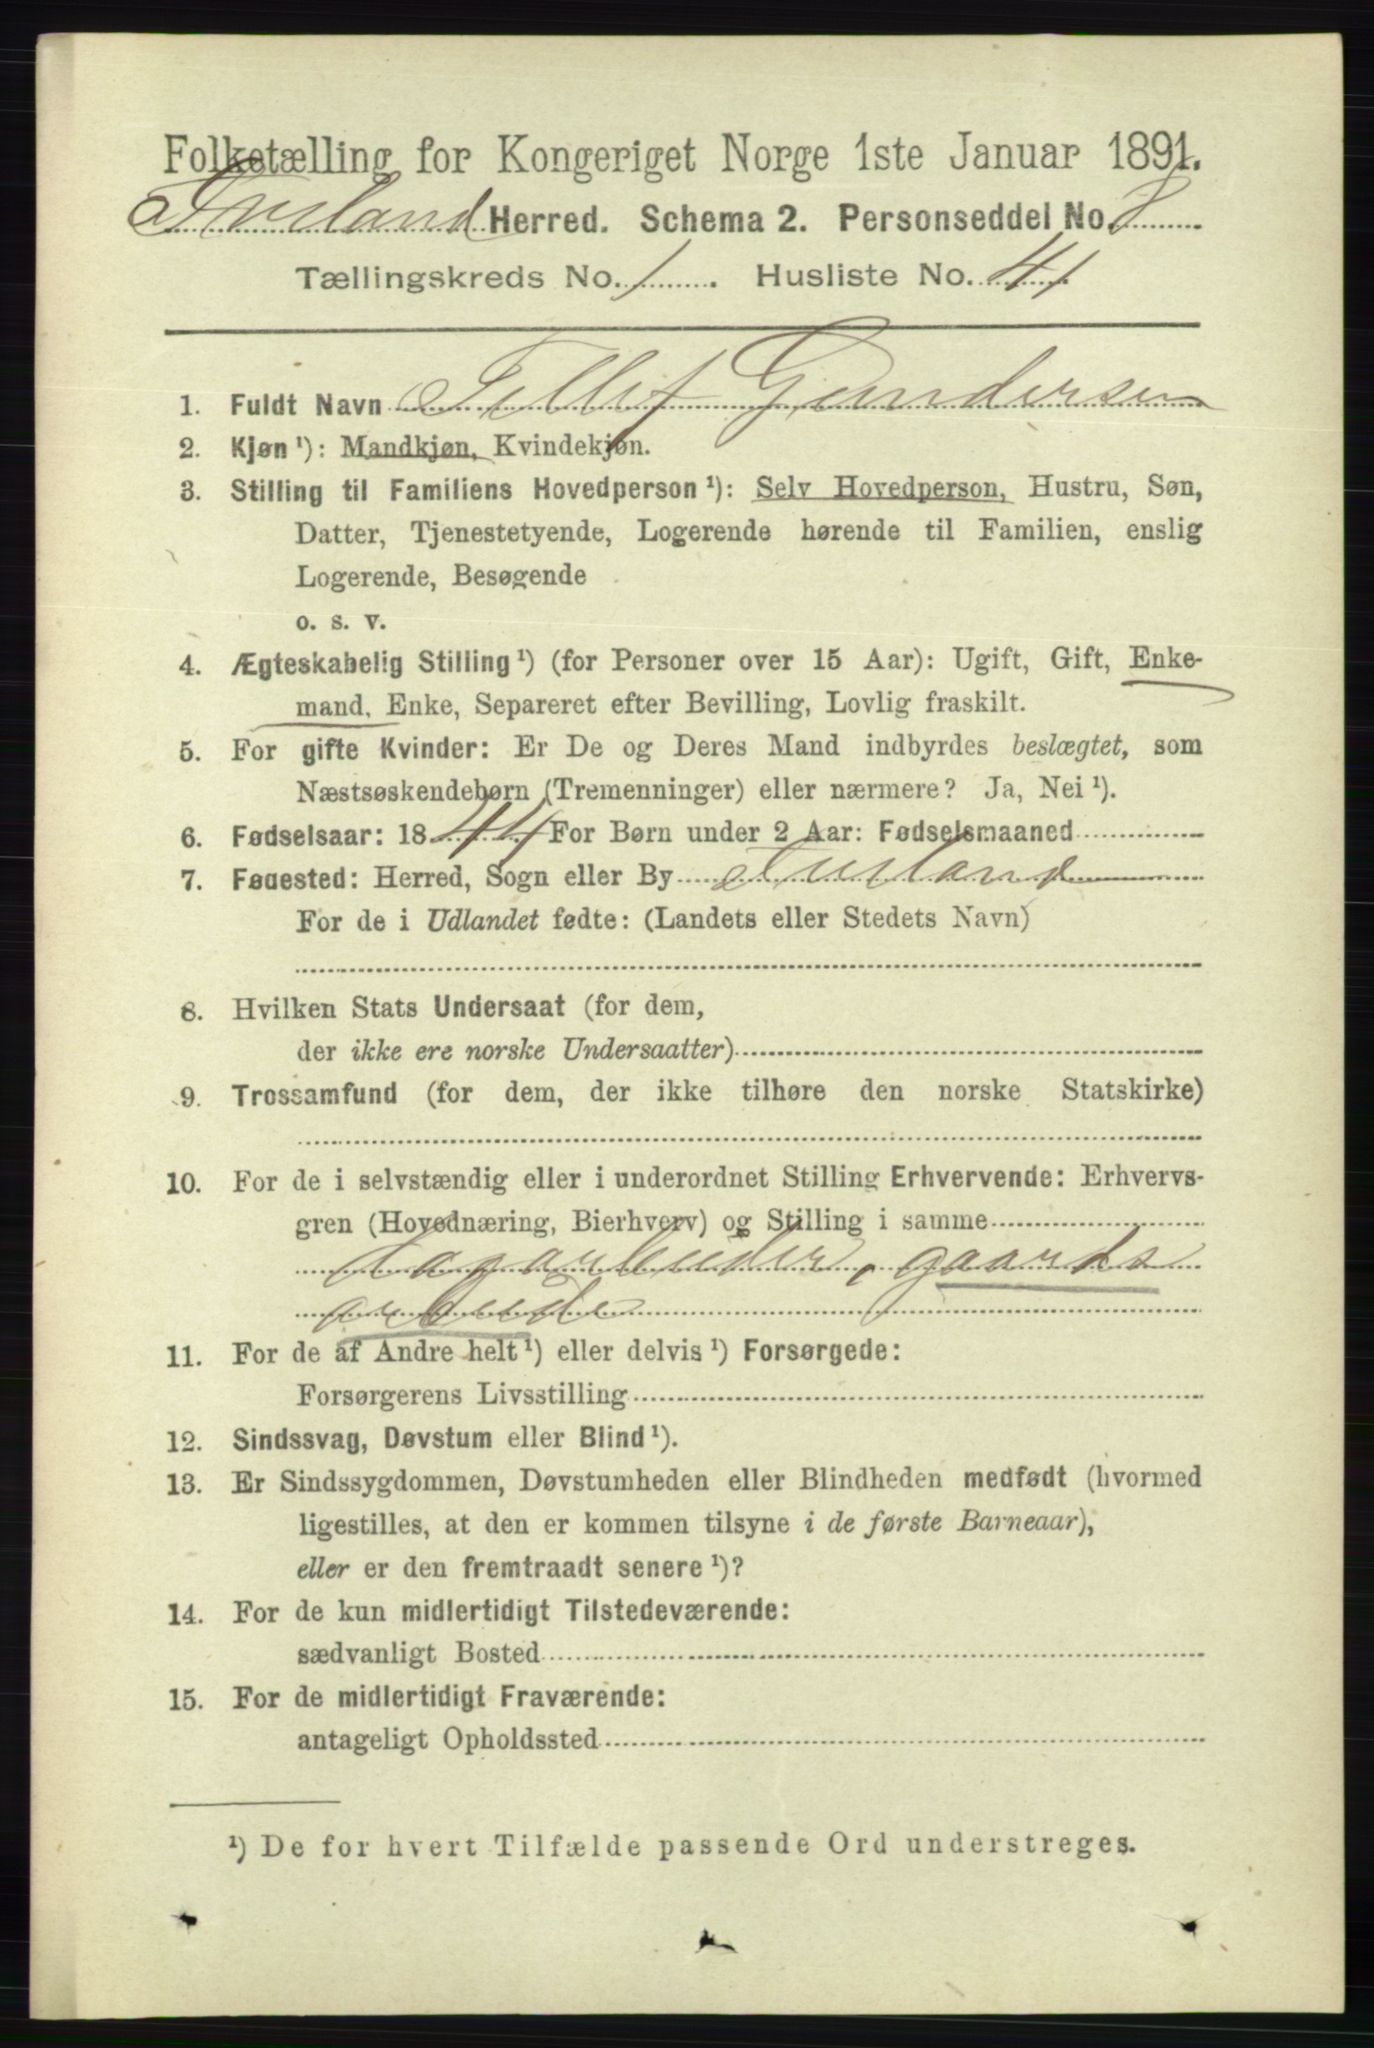 Folketælling for Kongeriget Norge 1ste Januar 1891.
Herred. Schema 2. Personseddel No. 8
Tællingskreds No. 1. Husliste No. 41
1. Fuldt Navn Tellef Gundersen
2. Kjøn ¹): Mandkjøn, Kvindekjøn.
3. Stilling til Familiens Hovedperson ¹): Selv Hovedperson, Hustru, Søn,
Datter, Tjenestetyende, Logerende hørende til Familien, enslig
Logerende, Besøgende
o. s. v.
4. Ægteskabelig Stilling ¹) (for Personer over 15 Aar): Ugift, Gift, Enke-
mand, Enke, Separeret efter Bevilling, Lovlig fraskilt.
5. For gifte Kvinder: Er De og Deres Mand indbyrdes beslægtet, som
Næstsøskendebørn (Tremenninger) eller nærmere? Ja, Nei ¹).
6. Fødselsaar: 1844 For Børn under 2 Aar: Fødselsmaaned
7. Fødested: Herred, Sogn eller By
For de i Udlandet fødte: (Landets eller Stedets Navn)
8. Hvilken Stats Undersaat (for dem,
der ikke ere norske Undersaatter)
9. Trossamfund (for dem, der ikke tilhøre den norske Statskirke)
10. For de i selvstændig eller i underordnet Stilling Erhvervende: Erhvervs-
gren (Hovednæring, Bierhverv) og Stilling i samme
Dagarbeider, gaards
arbeide
11. For de af Andre helt ¹) eller delvis ¹) Forsørgede:
Forsørgerens Livsstilling
12. Sindssvag, Døvstum eller Blind ¹).
13. Er Sindssygdommen, Døvstumheden eller Blindheden medfødt (hvormed
ligestilles, at den er kommen tilsyne i de første Barneaar),
eller er den fremtraadt senere ¹)?
14. For de kun midlertidigt Tilstedeværende:
sædvanligt Bosted
15. For de midlertidigt Fraværende:
antageligt Opholdssted
¹) De for hvert Tilfælde passende Ord understreges.